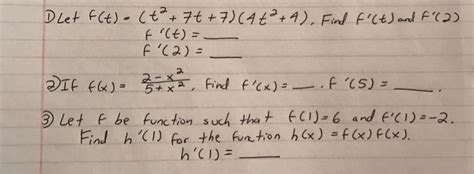 ① Let f(t) = (t² + 7t + 7)(4t² + 4). Find f'(t) and f'(2)
f'(t) = ___
f'(2) = ___
② If f(x) = (2-x²)/(5+x²), find f'(x) = ___. f'(5) = ___.
③ Let f be function such that f(1)=6 and f'(1)=-2.
Find h'(1) for the function h(x) = f(x)f(x).
h'(1) = ___